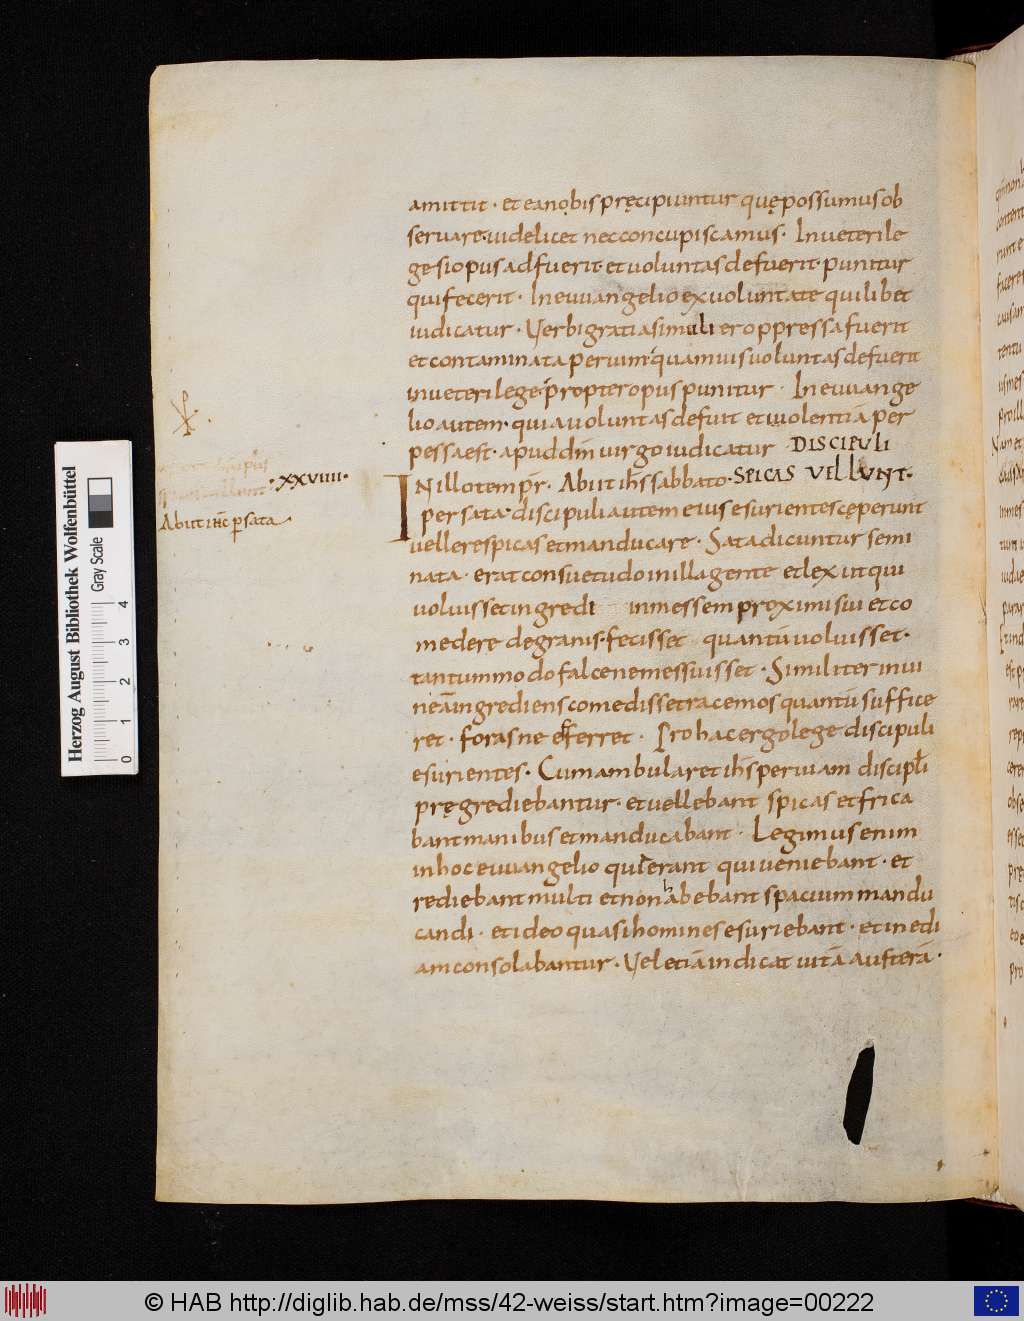 amittit · et ea nobis pręcipiuntur quę possumus ob
servare· uidelicet nec concupiscamus· In ueteri le
ge si opus adfuerit· et uoluntas defuerit· punitur
qui fecerit · In euuangelio ex uoluntate quilibet
iudicatur · Verbi gratia si mulier oppressa fuerit
et contaminata per uim· quamuis uoluntas defuerit
in ueteri lege· propter opus punitur · In euuange
lio autem· quia uoluntas defuit et uiolentia per
pessa est· apud dm̄ uirgo iudicatur · DISCIPULI
·XXVIIII·
IN illo tempr̄· Abiit ihs̄ sabbato· SPICAS VELLUNT·
Abiit ihc̄ p̱ sata
per sata· discipuli autem eius esurientes cęperunt
uellere spicas et manducare · Sata dicuntur semi
nata · erat consuetudo in illa gente et lex ut qui
uoluisset ingredi in messem proximi sui et co
medere de granis· fecisset quantū uoluisset·
tantummodo falce ne messuisset · Similiter in ui
neā ingrediens comedisset racemos quantū suffice
ret · foras ne efferret · Pro hac ergo lege discipuli
esurientes · Cum ambularet ihs̄ per uiam discipƚi
pręgrediebantur · et uellebant spicas et frica
bant manibus et manducabant · Legimus enim
in hoc euuangelio quia erant qui ueniebant · et
rediebant multi et non habebant spacium mandu
candi · et ideo quasi homines esuriebant · et inedi
am consolabantur · Vel etiā indicat uitā austerā·
Herzog August Bibliothek Wolfenbüttel
Gray Scale
0 1 2 3 4
© HAB http://diglib.hab.de/mss/42-weiss/start.htm?image=00222